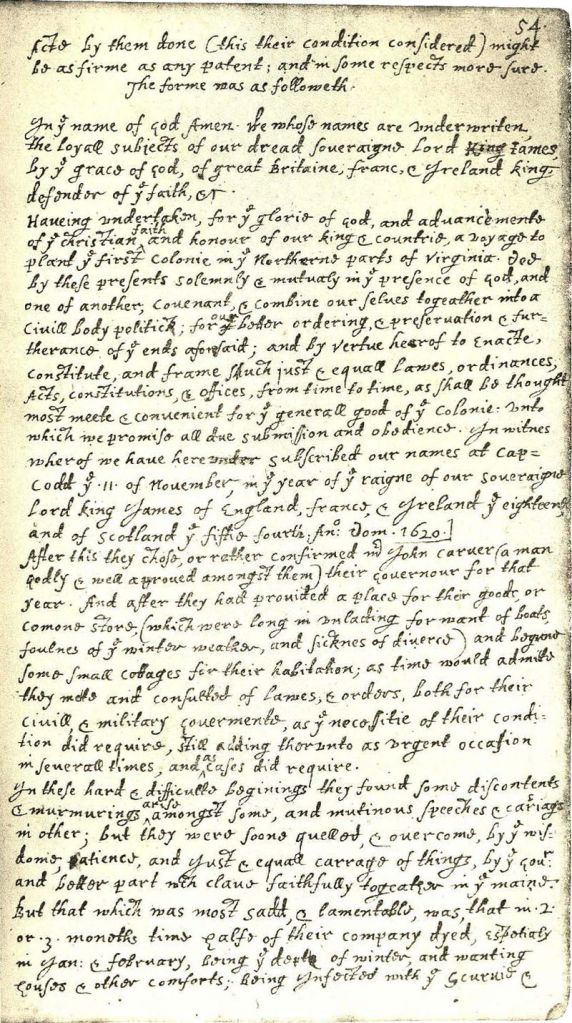 54
Acte by them done (this their condition considered) might
be as firme as any patent; and in some respects more sure.
The forme was as followeth.
In yͤ name of god Amen. We whose names are underwriten,
the loyall subjects of our dread soveraigne Lord King James,
by yͤ grace of God, of great Britaine, franc, & Ireland king,
defender of yͤ faith, &c
Haveing undertaken, for yͤ glorie of god, and advancemente
of yͤ christian faith and honour of our king & countrie, a voyage to
plant yͤ first colonie in yͤ Northerne parts of Virginia. Doe
by these presents solemnly & mutualy in yͤ presence of God, and
one of another, covenant, & combine our selves togeather into a
Civill body politick; for our better ordering, & preservation & fur-
therance of yͤ ends aforesaid; and by vertue hearof to Enacte,
constitute, and frame shuch just & equall Lawes, ordinances,
Acts, constitutions, & offices, from time to time, as shall be thought
most meete & convenient for yͤ generall good of yͤ Colonie: unto
which we promise all due submission and obedience. In witnes
wherof we have hereunder subscribed our names at Cap=
Codd yͤ .11. of November, in yͤ year of yͤ raigne of our soveraigne
Lord king James of England, france, & Ireland yͤ eighteenth
and of Scotland yͤ fiftie fourth. Anͦ: Dom. 1620.]
After this they chose, or rather confirmed mͬ John Carver (a man
godly & well approved amongst them) their governour for that
year. And after they had provided a place for their goods, or
comone store, (which were long in unlading for want of boats,
foulnes of yͤ winter weather, and sicknes of diverce) and begune
some small cottages for their habitation; as time would admitte
they mette and consulted of lawes, & orders, both for their
civill & military govermente, as yͤ necessitie of their condi-
tion did require, still adding therunto as urgent occasion
in severall times, and as cases did require.
In these hard & difficulte beginings they found some discontents
& murmurings arise amongst some, and mutinous speeches & cariags
in other; but they were soone quelled, & overcome, by yͤ wis-
dome, patience, and just & equall carrage of things, by yͤ Govͬ
and better part wͨh clave faithfully togeather in yͤ maine.
But that which was most sadd, & lamentable, was, that in .2.
or .3. moneths time halfe of their company dyed, espetialy
in Jan: & february, being yͤ depth of winter, and wanting
houses & other comforts; being Infected with yͤ Scurvie &